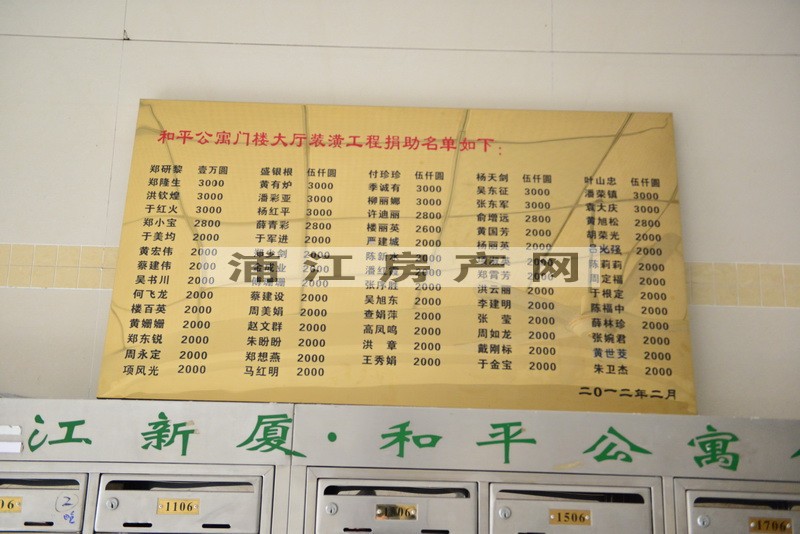 和平公寓门楼大厅装潢工程捐助名单如下：
郑研黎 壹万圆
郑隆生 3000
洪钦煌 3000
于红火 3000
郑小宝 2800
于美均 2000
黄宏伟 2000
蔡建伟 2000
吴书川 2000
何飞龙 2000
楼百英 2000
黄姗姗 2000
郑东锐 2000
周永定 2000
项风光 2000
盛银根 伍仟圆
黄有炉 3000
潘彩亚 3000
杨红平 3000
薛青彩 2800
于军进 2000
2000
2000
2000
蔡建设 2000
周美娟 2000
赵文群 2000
朱盼盼 2000
郑想燕 2000
马红明 2000
付珍珍 伍仟圆
季诚有 3000
柳丽娜 3000
许迪丽 2800
楼丽英 2600
严建城 2000
2000
2000
2000
吴旭东 2000
查娟萍 2000
高凤鸣 2000
洪章 2000
王秀娟 2000
杨天剑 伍仟圆
吴东征 3000
张东军 3000
俞增远 2800
黄国芳 2000
杨丽英 2000
2000
郑霄芳 2000
洪云丽 2000
李建明 2000
张莹 2000
周如龙 2000
戴刚标 2000
于金宝 2000
叶山忠 伍仟圆
潘荣镇 3000
袁大庆 3000
黄旭松 2800
胡荣光 2000
2000
陈莉莉 2000
周定福 2000
于根定 2000
陈福中 2000
薛林珍 2000
张婉君 2000
黄世芰 2000
朱卫杰 2000
二〇一二年二月
浦江房产网
江新厦·和平公寓
06
1106
1306
1506
1706